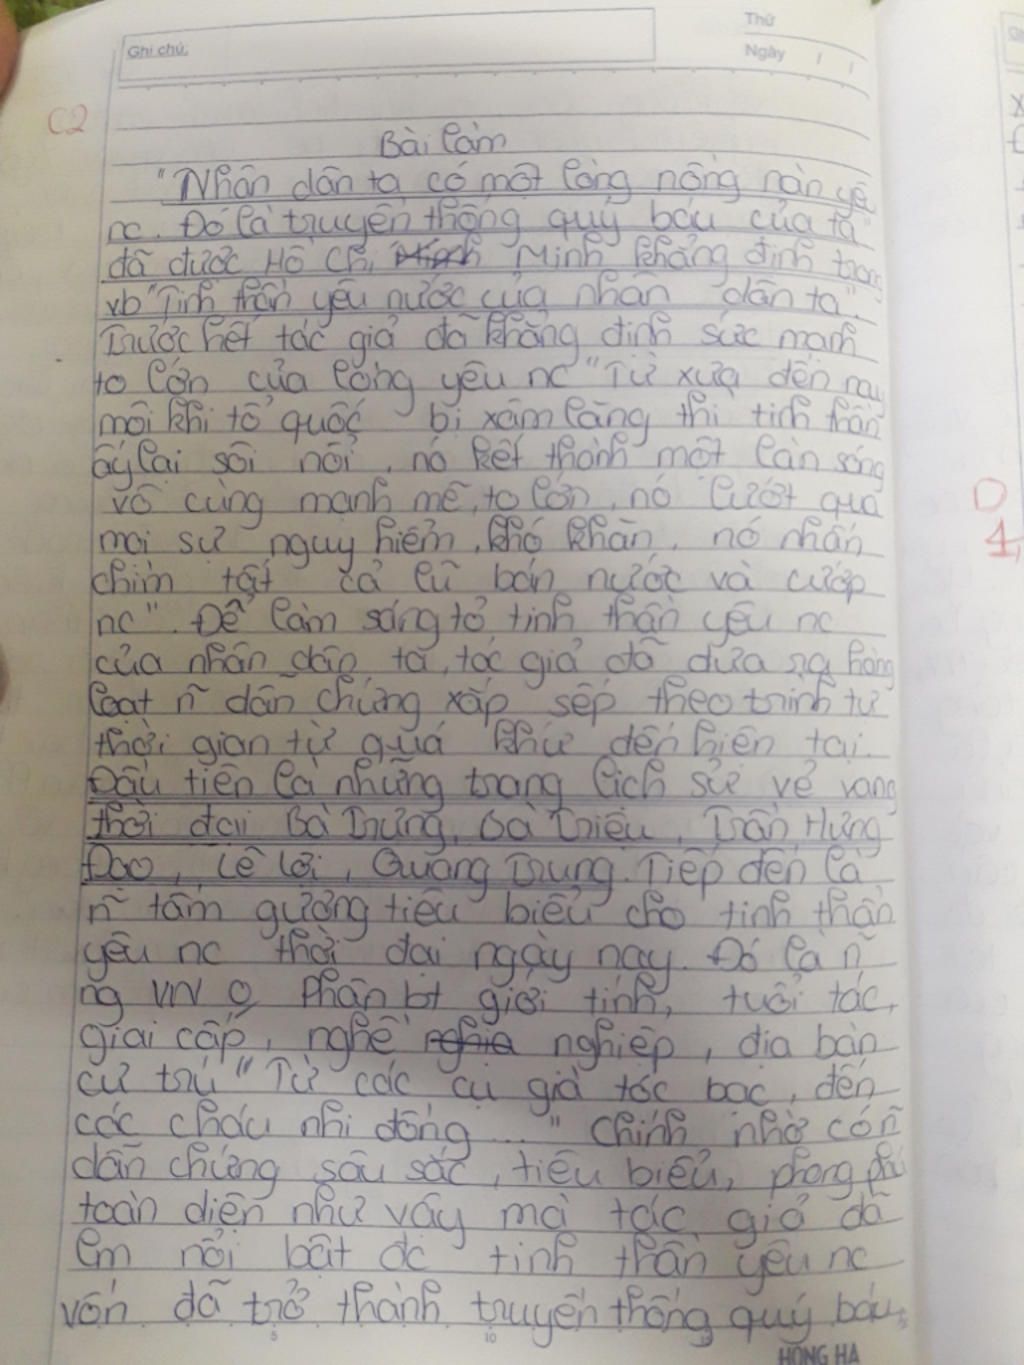 Ghi chú:
Thứ
Ngày / /
C2
Bài làm
"Nhân dân ta có một lòng nồng nàn yê
nc. Đó là truyền thống quý báu của ta"
đã được Hồ Chí Minh khẳng định trong
vb "Tinh thần yêu nước của nhân dân ta".
Trước hết tác giả đã khẳng định sức mạnh
to lớn của lòng yêu nc "Từ xưa đến nay
mỗi khi tổ quốc bị xâm lăng thì tinh thần
ấy lại sôi nổi, nó kết thành một làn sóng
vô cùng mạnh mẽ, to lớn, nó lướt qua
mọi sự nguy hiểm, khó khăn, nó nhấn
chìm tất cả lũ bán nước và cướp
nc". Để làm sáng tỏ tinh thần yêu nc
của nhân dân ta, tác giả đã đưa ra hàng
loạt ~n dẫn chứng xắp sếp theo trình tự
thời gian từ quá khứ đến hiện tại.
Đầu tiên là những trang lịch sử vẻ vang
thời đại Bà Trưng, Bà Triệu, Trần Hưng
Đạo, Lê Lợi, Quang Trung. Tiếp đến là
~n tấm gương tiêu biểu cho tinh thần
yêu nc thời đại ngày nay. Đó là ~n
ng VN phân bt giới tính, tuổi tác,
giai cấp, nghề nghiệp, địa bàn
cư trú "Từ các cụ già tóc bạc, đến
các cháu nhi đồng ..." Chính nhờ có ~n
dẫn chứng sâu sắc, tiêu biểu, phong phú
toàn diện như vậy mà tác giả đã
lm nổi bật đc tinh thần yêu nc
vốn đã trở thành truyền thống quý báu,
5 10
HỒNG HÀ